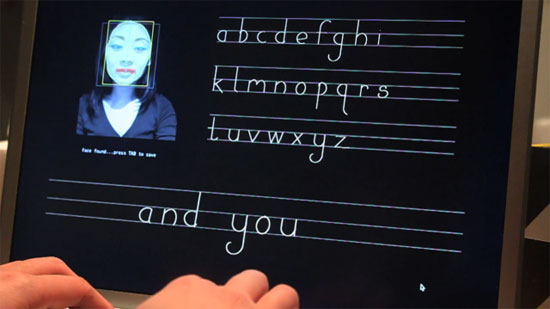 a b c d e f g h i
k l m n o p q r s
t u v w x y z
Face found...press TAB to save
and you